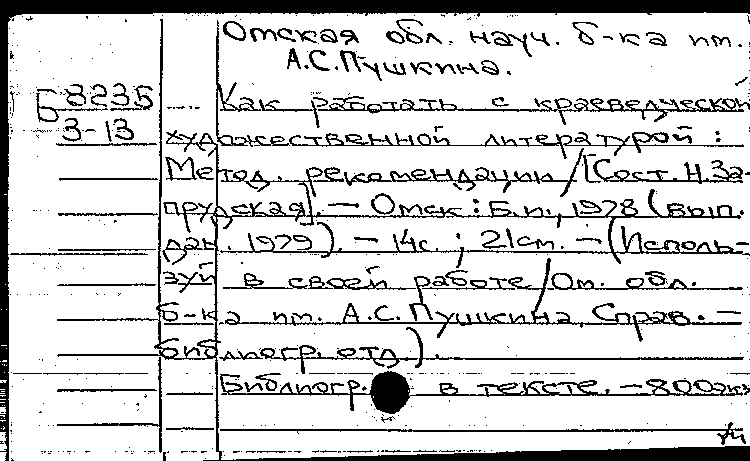 Омская обл. науч. б-ка им.
А.С.Пушкина.
Б 8235
3-13
Как работать с краеведческой
художественной литературой :
Метод. рекомендации / [Сост. Н.За-
прудская]. — Омск : Б.и., 1978 (вып.
дан. 1979). — 14с. ; 21см. — (Исполь-
зуй в своей работе / Ом. обл.
б-ка им. А.С. Пушкина. Справ. —
библиогр. отд.).
Библиогр. в тексте. — 800экз